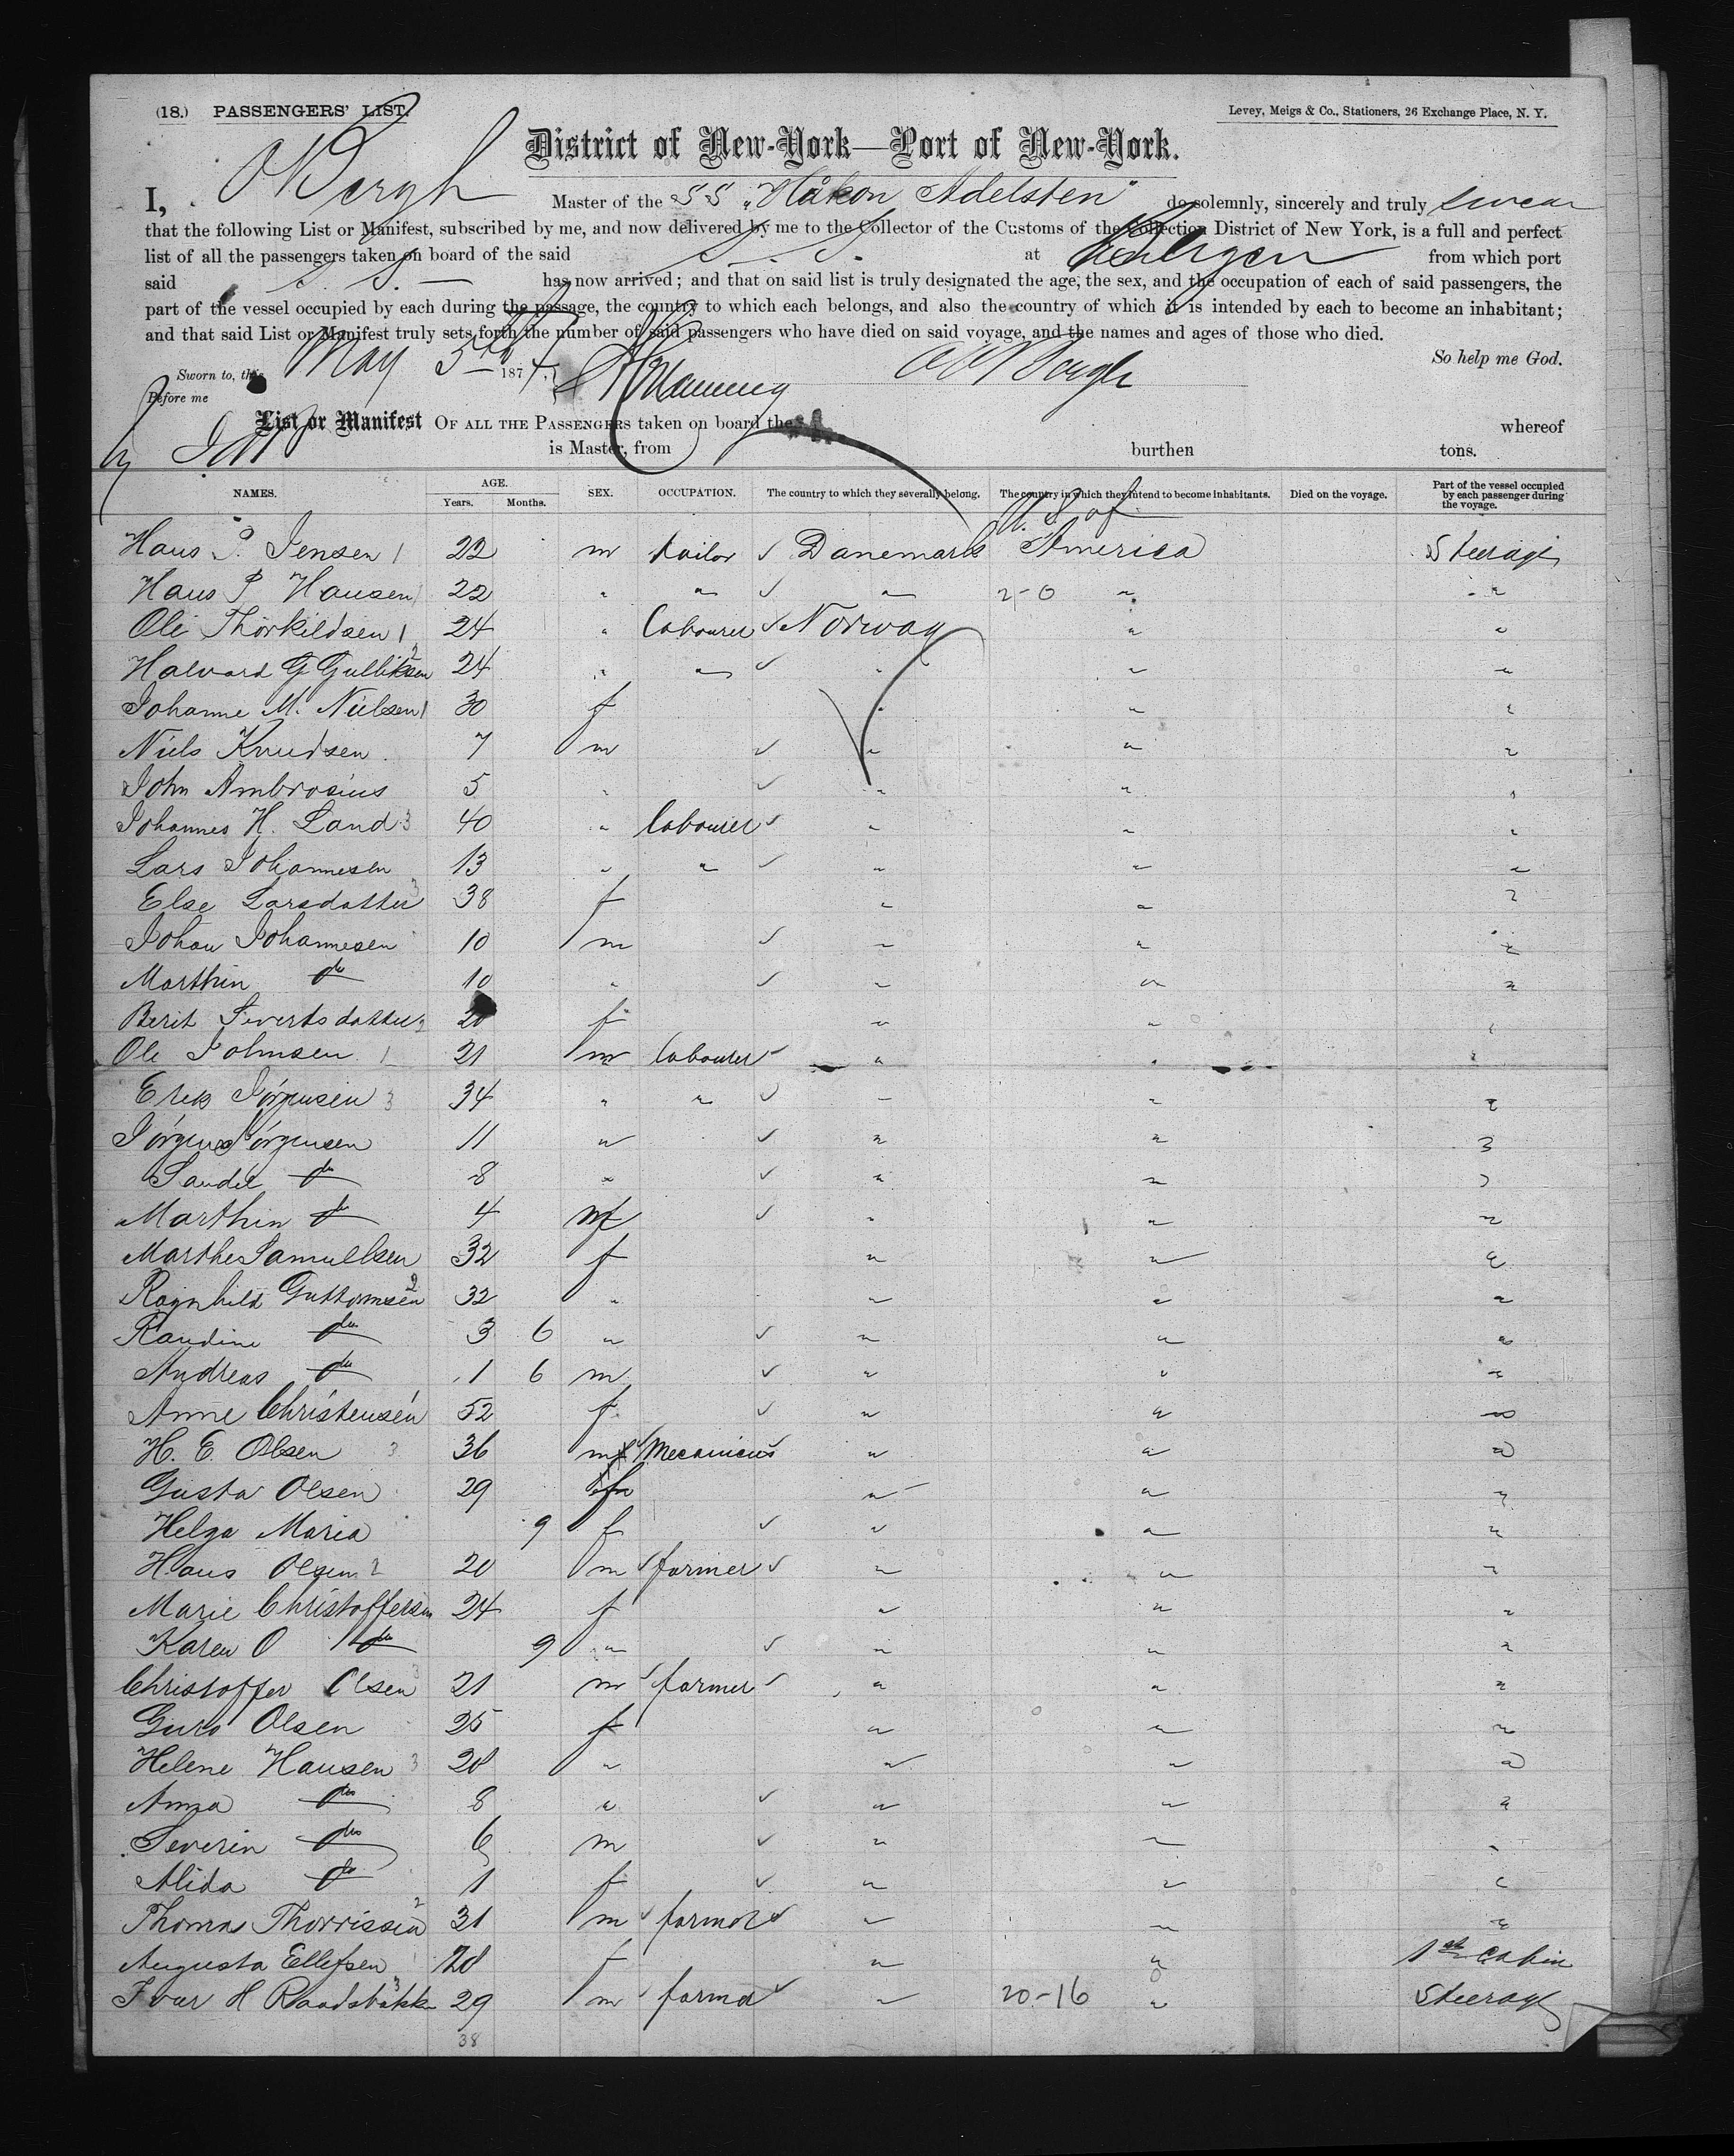 (18.) PASSENGERS' LIST.
Levey, Meigs & Co., Stationers, 26 Exchange Place, N. Y.
District of New-York—Port of New-York.
I, Bergh Master of the SS „Håkon Adelsten" do solemnly, sincerely and truly swear
that the following List or Manifest, subscribed by me, and now delivered by me to the Collector of the Customs of the Collection District of New York, is a full and perfect
list of all the passengers taken on board of the said S. S. at Bergen from which port
said S. S. has now arrived; and that on said list is truly designated the age, the sex, and the occupation of each of said passengers, the
part of the vessel occupied by each during the passage, the country to which each belongs, and also the country of which it is intended by each to become an inhabitant;
and that said List or Manifest truly sets forth the number of said passengers who have died on said voyage, and the names and ages of those who died.
So help me God.
Sworn to, this May 5th 1874 Bergh
Before me
List or Manifest OF ALL THE PASSENGERS taken on board the whereof
is Master, from burthen tons.
NAMES. AGE. Years. Months. SEX. OCCUPATION. The country to which they severally belong. The country in which they intend to become inhabitants. Died on the voyage. Part of the vessel occupied by each passenger during the voyage.
Hans P. Jensen 1 22 m tailor ✓ Danemark U. S. of America Steerage
Hans P Hansen 1 22 " " ✓ " 2-0 " "
Ole Thorkildsen 1 24 " labourer ✓ Norway " "
Halvard G Gulliksen 2 24 " " ✓ " " "
Johanne M. Nielsen 1 30 f " " "
Niels Knudsen 7 m ✓ " " "
John Ambrosius 5 " ✓ " " "
Johannes H. Land 3 40 " labourer ✓ " " "
Lars Johannesen 13 " " ✓ " " "
Else Larsdatter 3 38 f " " "
Johan Johannesen 10 m ✓ " " "
Marthin do 10 " ✓ " " "
Berit Sivertsdatter 2 20 f " " "
Ole Johnsen 1 21 m labourer ✓ " " "
Erik Jørgensen 3 34 " " ✓ " " "
Jørgen Jørgensen 11 " ✓ " " "
Sandel do 8 " ✓ " " "
Marthin do 4 m ✓ " " "
Marthe Samuelsen 32 f " " "
Ragnhild Guttormsen 2 32 " " " "
Randine do 3 6 " ✓ " " "
Andreas do 1 6 m ✓ " " "
Anne Christensen 52 f ✓ " " "
H. E. Olsen 3 36 m ✓ Mecanicus ✓ " " "
Gusta Olsen 29 f " " "
Helga Maria 9 f ✓ " " "
Hans Olsen 2 20 m ✓ farmer ✓ " " "
Marie Christoffersen 24 f " " "
Karen O do 9 " ✓ " " "
Christoffer Olsen 3 21 m ✓ farmer ✓ " " "
Guro Olsen 25 f " " "
Helene Hansen 3 28 " " " "
Anna do 8 " ✓ " " "
Severin do 6 m ✓ " " "
Alida do 1 f ✓ " " "
Thomas Thorrissen 2 31 m ✓ farmer ✓ " " "
Augusta Ellefsen 28 f " " 1st Cabin
Iver H Raadsbakk 3 29 m ✓ farmer ✓ " 20-16 " Steerage
38